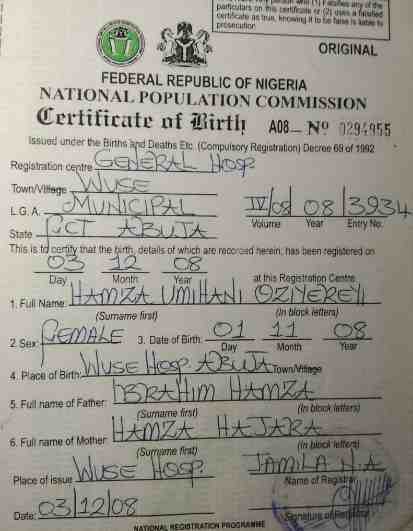 particulars on this certificate or (2) uses a falsified
certificate as true, knowing it to be false is liable to
prosecution
ORIGINAL
FEDERAL REPUBLIC OF NIGERIA
NATIONAL POPULATION COMMISSION
Certificate of Birth A08 No 0294955
Issued under the Births and Deaths Etc. (Compulsory Registration) Decree 69 of 1992
Registration centre GENERAL HOSP.
Town/Village WUSE
L.G.A. MUNICIPAL IV/08 08 3934
Volume Year Entry No.
State FCT ABUJA
This is to certify that the birth, details of which are recorded herein, has been registered on
03 12 08
Day Month Year at this Registration Centre
1. Full Name: HAMZA UMIHANI OZIYEREYI
(Surname first) (In block letters)
2. Sex: FEMALE 3. Date of Birth: 01 11 08
Day Month Year
4. Place of Birth: WUSE HOSP. ABUJA Town/Village
5. Full name of Father: IBRAHIM HAMZA
(Surname first) (In block letters)
6. Full name of Mother: HAMZA HAJARA
(Surname first) (In block letters)
Place of issue WUSE HOSP. JAMILA N.A
Name of Registrar
Date: 03/12/08 Signature of Registrar
NATIONAL REGISTRATION PROGRAMME